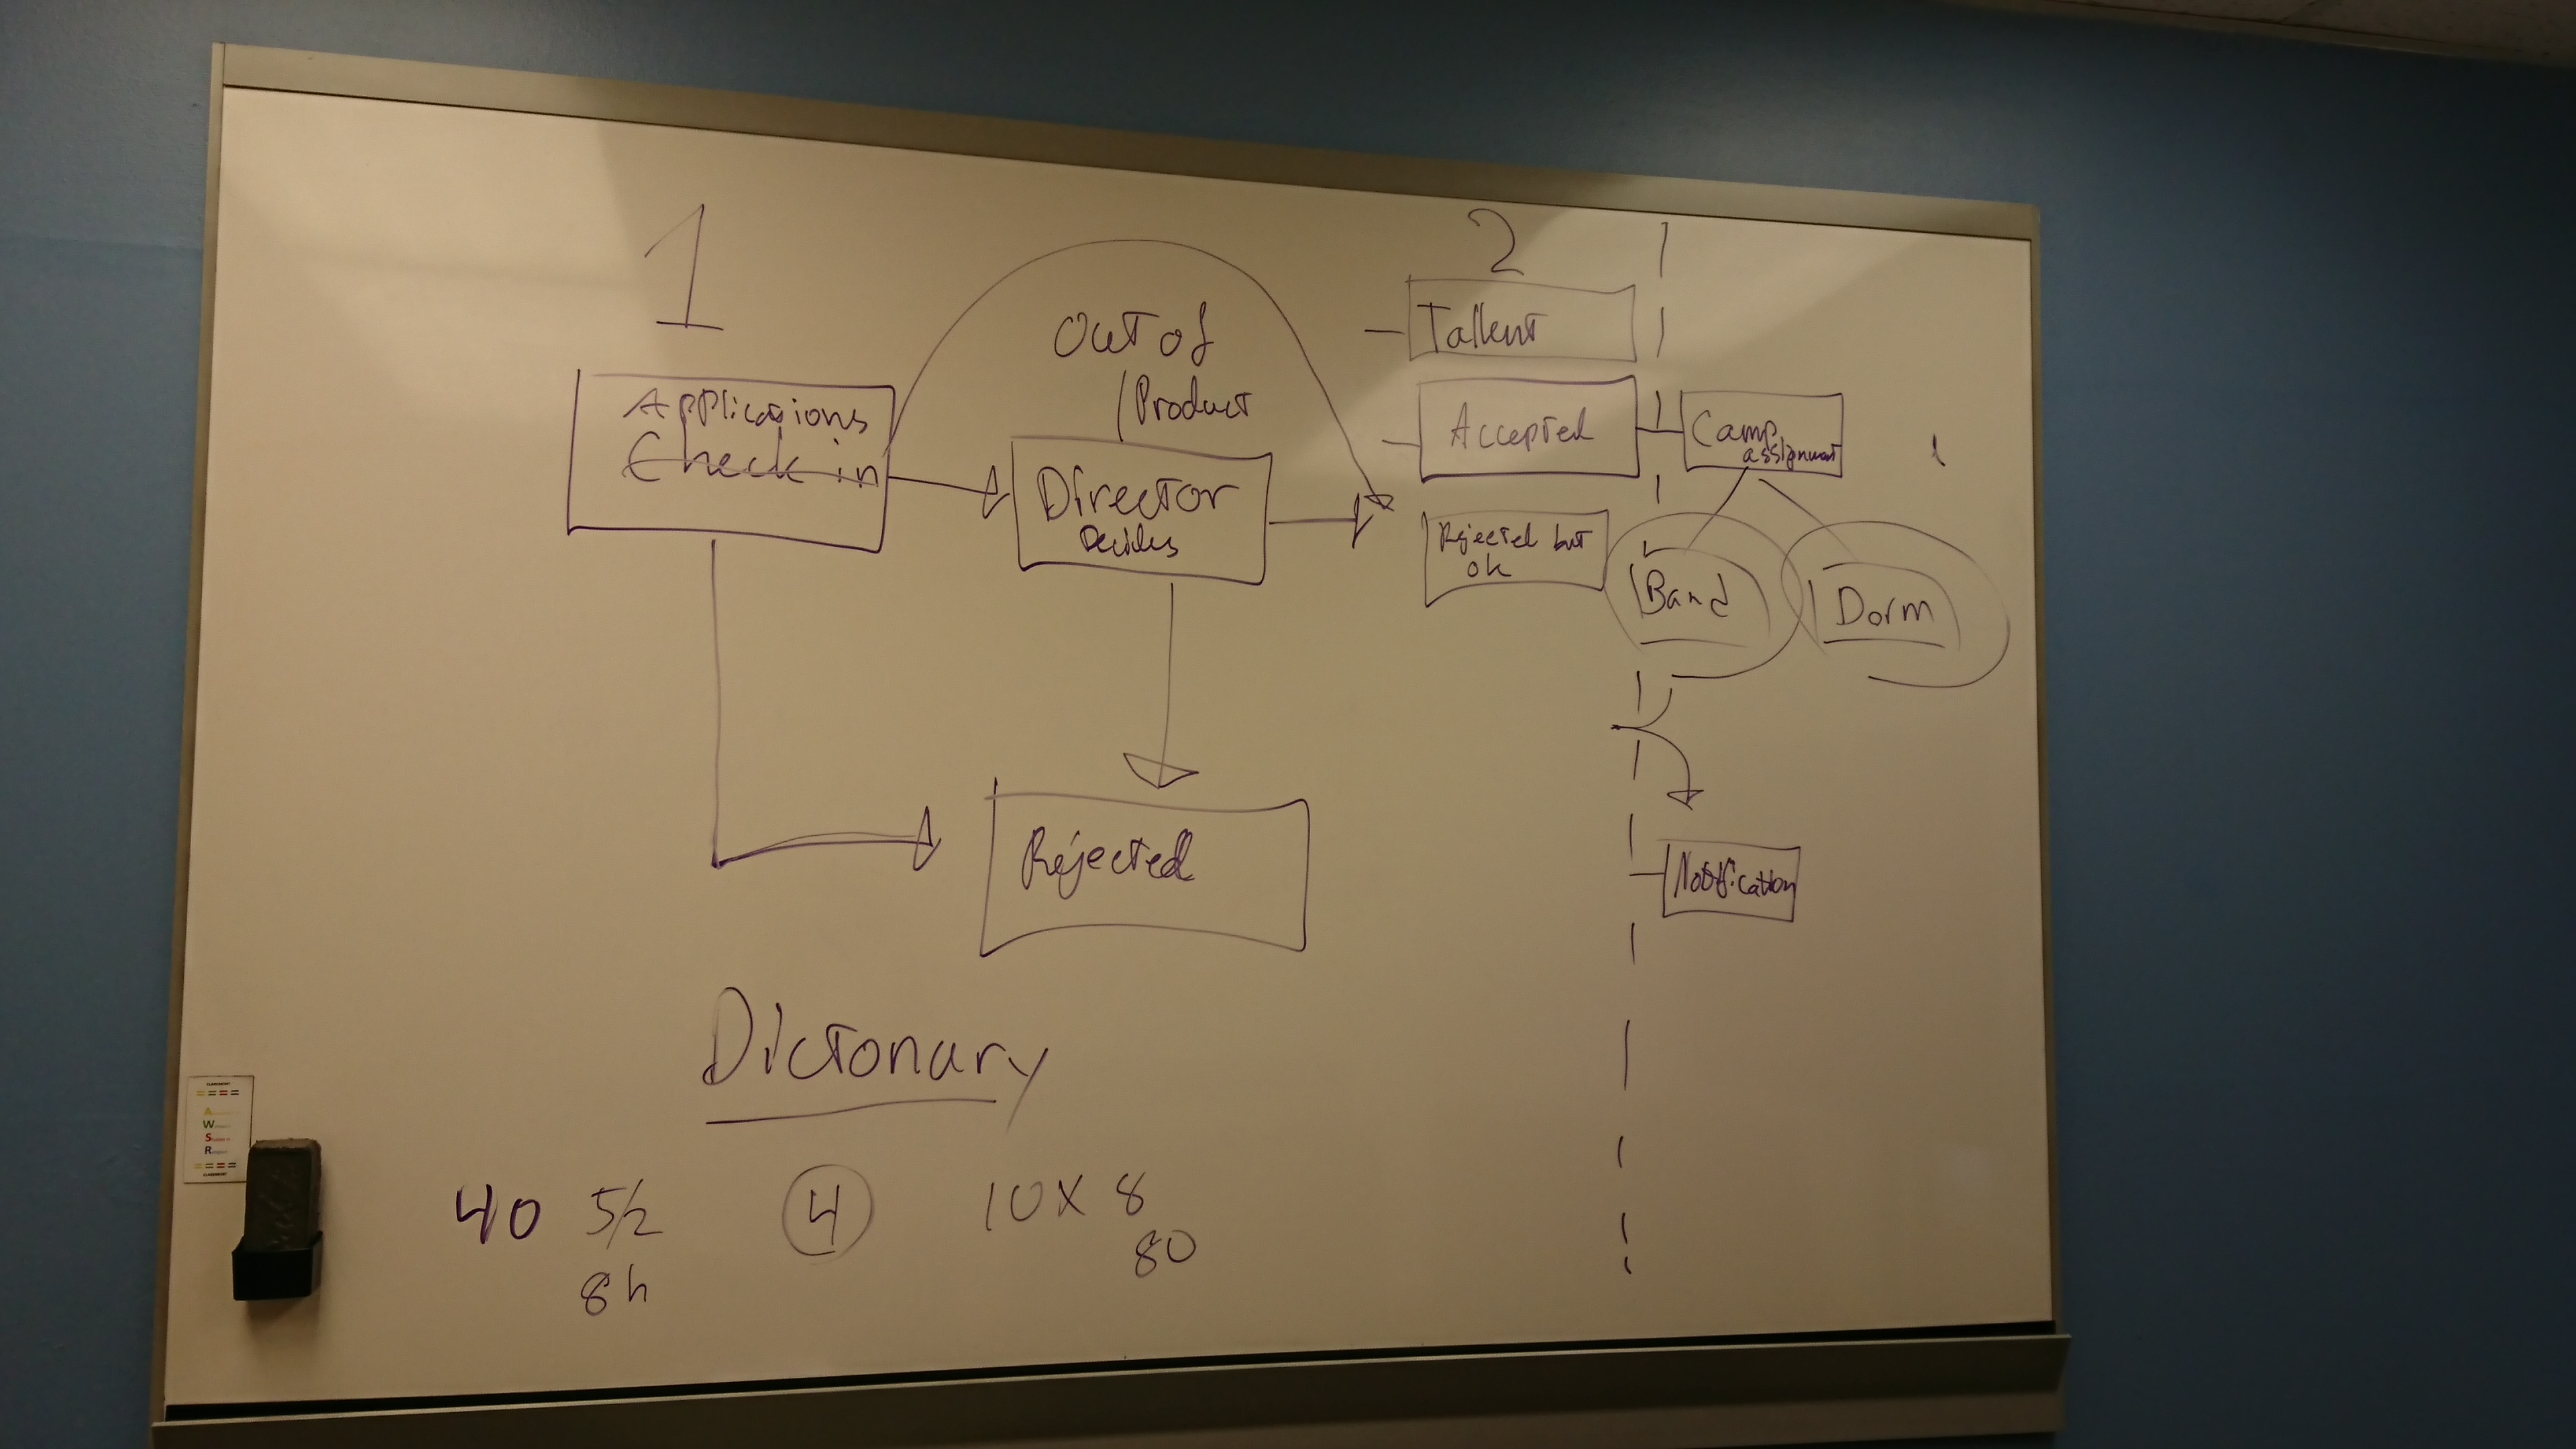 1
Applications
Check in
Out of
Product
Director
Decides
Rejected
2
Tallent
Accepted
Rejected but
ok
Camp
assignment
Band
Dorm
Notification
Dictonary
40 5/2
8h
4
10 X 8
80
CLAREMONT
A
W
S
R
CLAREMONT